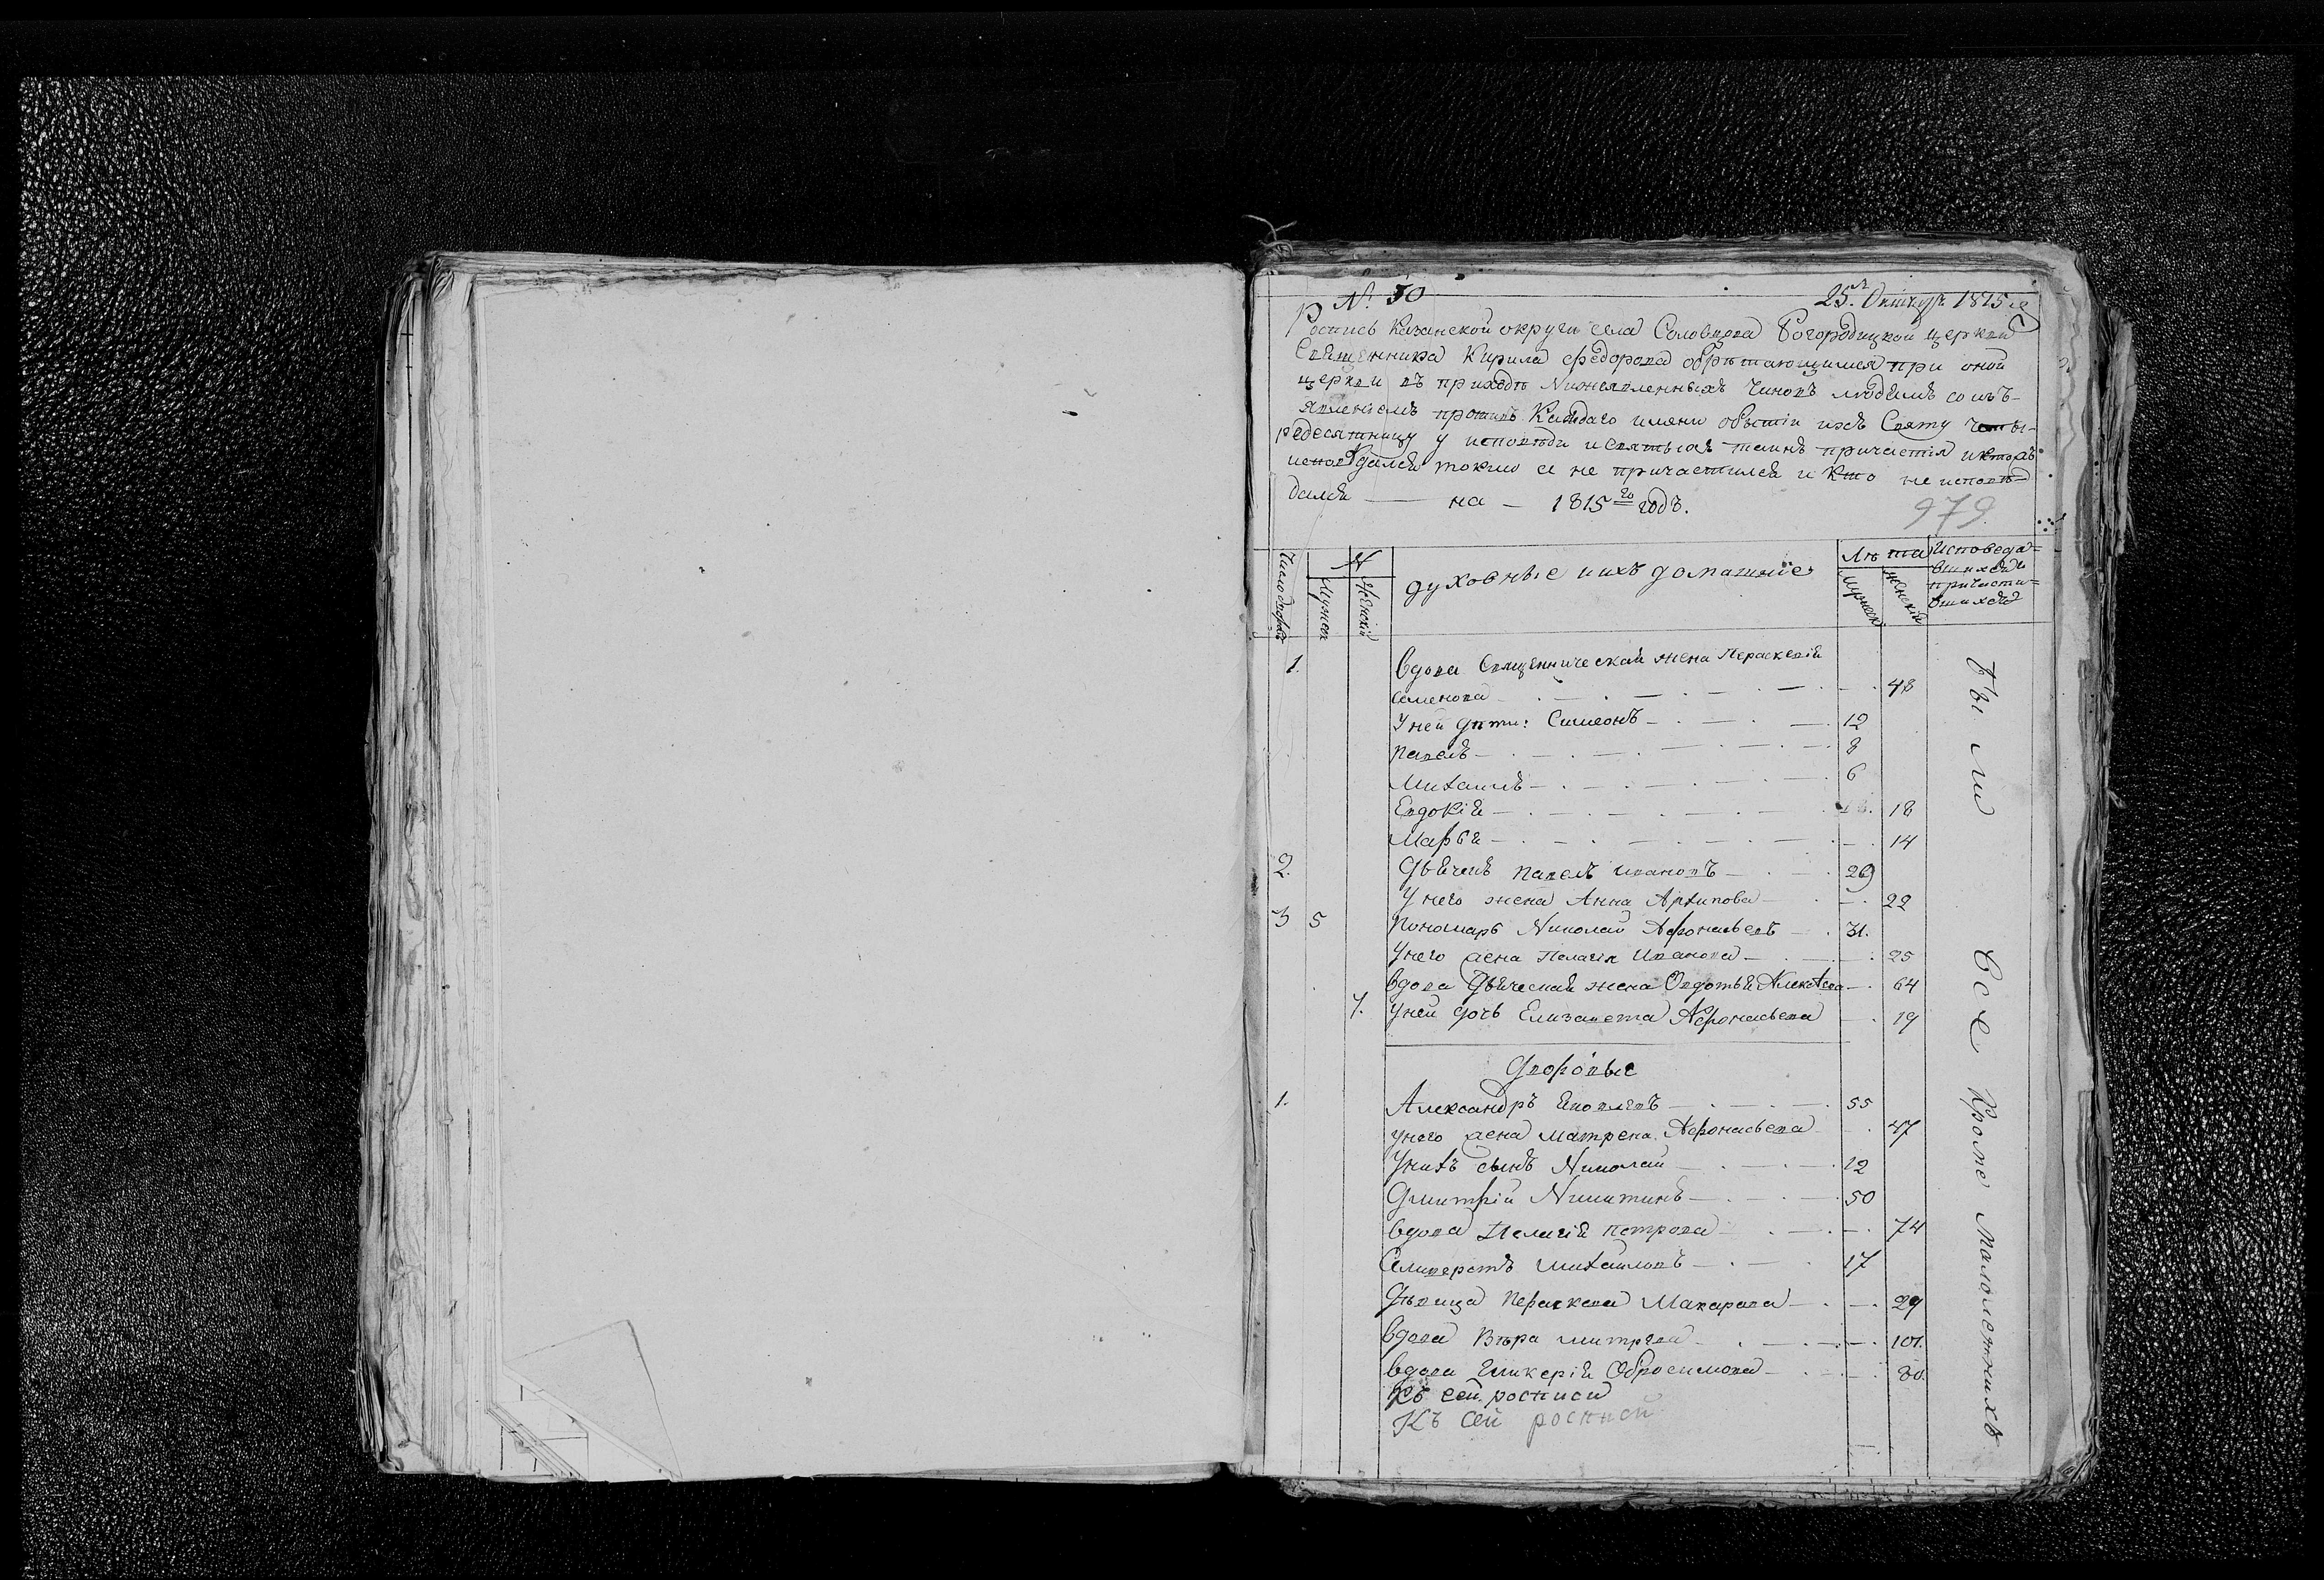 № 50
25. Октября 1815 го
Роспись Казанской округи села Соловцова Богородицкой церкви
Священника Кирила Федорова обретающимся при оной
церкви въ приходѣ Нижеявленныхъ Чиновъ людемъ со изъ-
явленіемъ противъ Каждаго имяни о бытіи ихъ въ Святу Четы-
редесятницу у исповѣди и святыхъ таинъ причастія и кто
исповѣдался токмо а не причастился и Кто не исповѣ
дался — на — 1815 го годъ.
979
Число дворовъ
№
Мужеск
Женскій
духовные и ихъ домашніе
Лѣта
мужеск
женскій
Исповеда=
вшихся
причасти=
вшихся
1. вдова Священническая жена Пераскевія
Семенова 48
У ней дѣти: Симеонъ 12
Павелъ 8
Михаилъ 6
Евдокія 18
Марья 14
2. Дьячекъ Павелъ Ивановъ 29
У него жена Анна Архипова 22
3 5 Пономарь Николай Афонасьевъ 31.
У него жена Пелагія Иванова 25
вдова Дьяческая жена Овдотья Алексѣева 64
7. У ней дочь Елизавета Афонасьева 19
Дворовые
1. Александръ Яковлевъ 55
у него жена Матрена Афонасьева 47
У нихъ сынъ Николай 12
Дмитрій Никитинъ 50
вдова Пелагія Петрова 74
Селиверстъ Михайловъ 17
Дѣвица Пераскева Макарова 29
вдова Вѣра Митрева 101.
вдова Гликерія Обросимова 80.
Къ сей росписи
Къ сей росписи
были
Все Кроме малолетнихъ